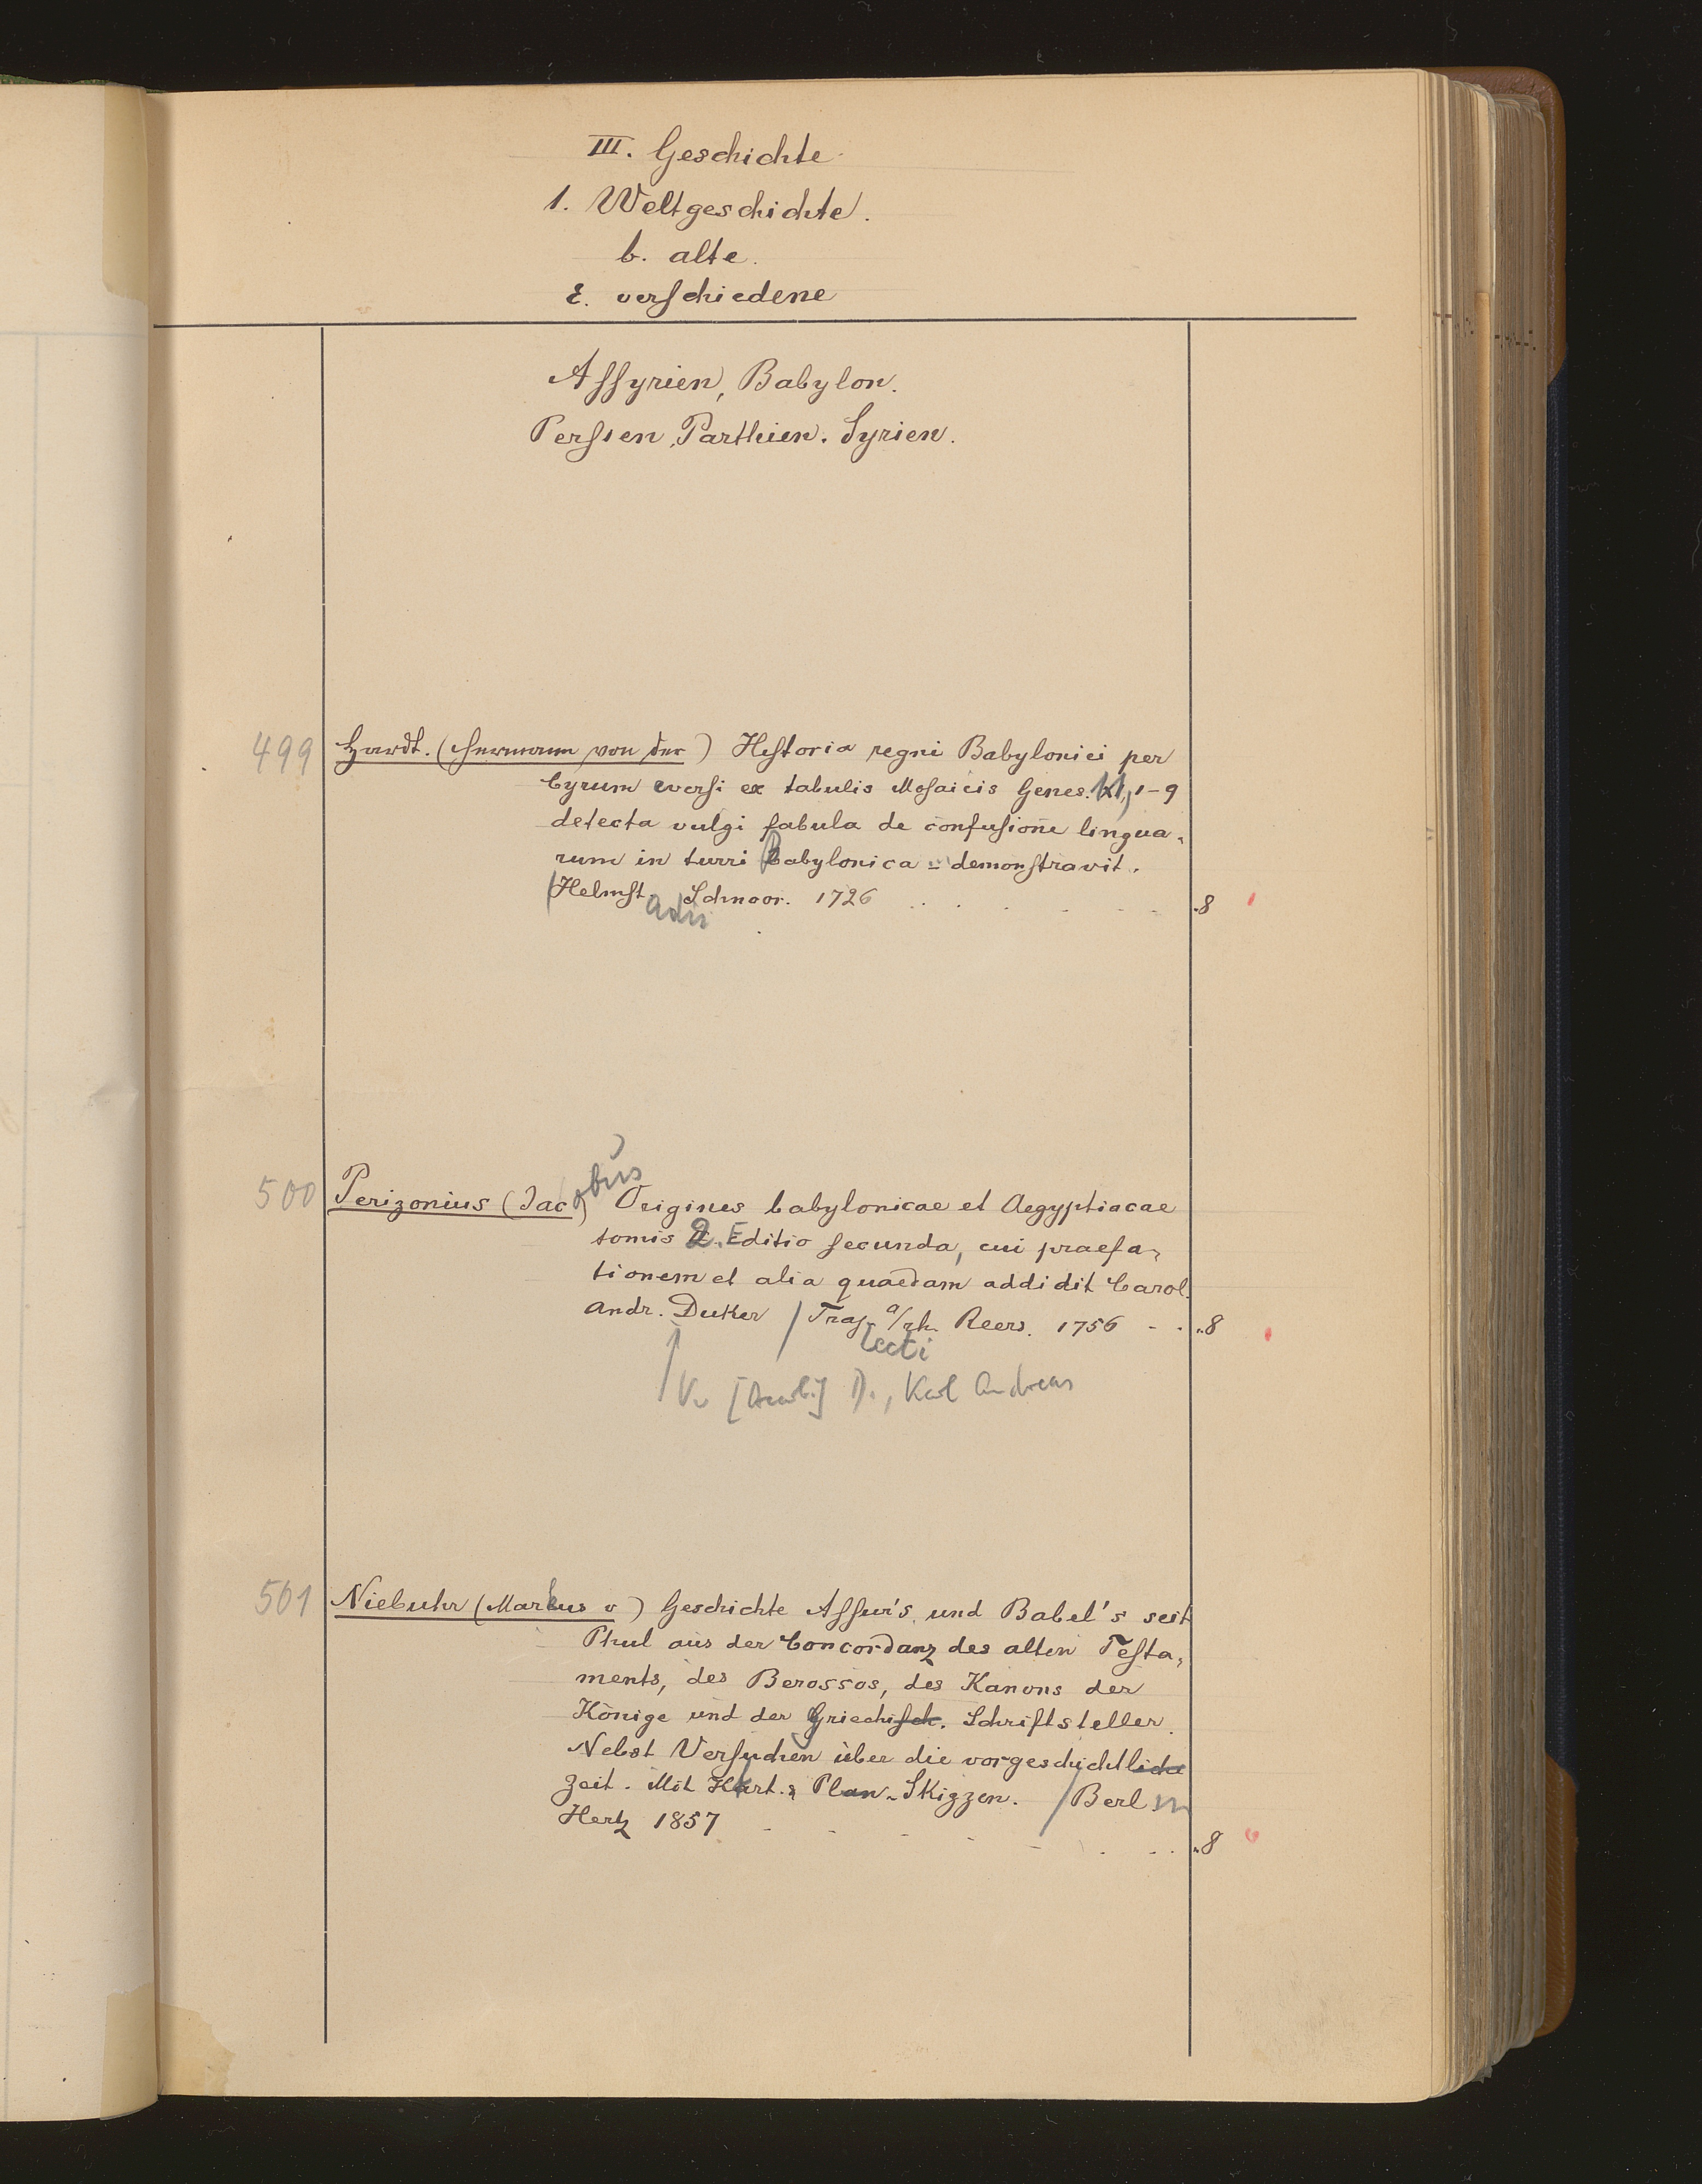 III. Geschichte
1. Weltgeschichte.
b. alte.
ε. verschiedene
Assyrien, Babylon.
Persien, Parthien. Syrien.
499 Hardt. (Hermann von der) Historia regni Babylonici per
Cyrum eversi ex tabulis Mosaicis Genes. XI, 1-9
detecta vulgi fabula de confusione lingua-
rum in turri Babylonica demonstravit.
/Helmst Schnoor. 1726 . . . . . . .8
adii
obus
500 Perizonius (Jac) Origines babylonicae et Aegyptiacae
tomis 2. Editio secunda, cui praefa-
tionem et alia quaedam addidit Carol.
Andr. Duker / Traj. a/rh. Reers. 1756 - - .8
lecti
Vw D., Karl Andreas
501 Niebuhr (Markus v) Geschichte Assur's und Babel's seit
Phul aus der Concordanz des alten Testa-
ments, des Berossos, des Kanons der
Könige und der Griechisch. Schriftsteller.
Nebst Versuchen über die vorgeschichtliche
Zeit. Mit Kart. & Plan-Skizzen. / Berlin
Hertz 1857 . . . . . . . .8